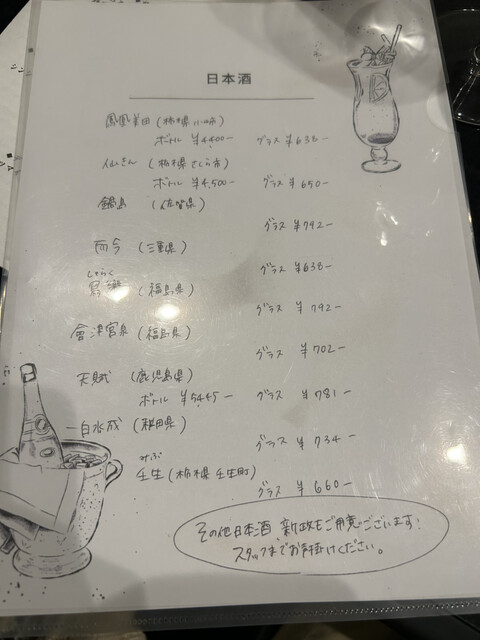 日本酒
鳳凰美田 (栃木県 小山市)
ボトル ¥4400- グラス ¥638-
仙きん (栃木県 さくら市)
ボトル ¥4,500- グラス ¥650-
鍋島 (佐賀県)
グラス ¥792-
而今 (三重県)
グラス ¥638-
しゃらく
寫樂 (福島県)
グラス ¥792-
會津宮泉 (福島県)
グラス ¥702-
天賦 (鹿児島県)
ボトル ¥5445- グラス ¥781-
一白水成 (秋田県)
グラス ¥734-
みぶ
壬生 (栃木県 壬生町)
グラス ¥660-
その他日本酒 新政もご用意ございます!
スタッフまでお声掛けください。